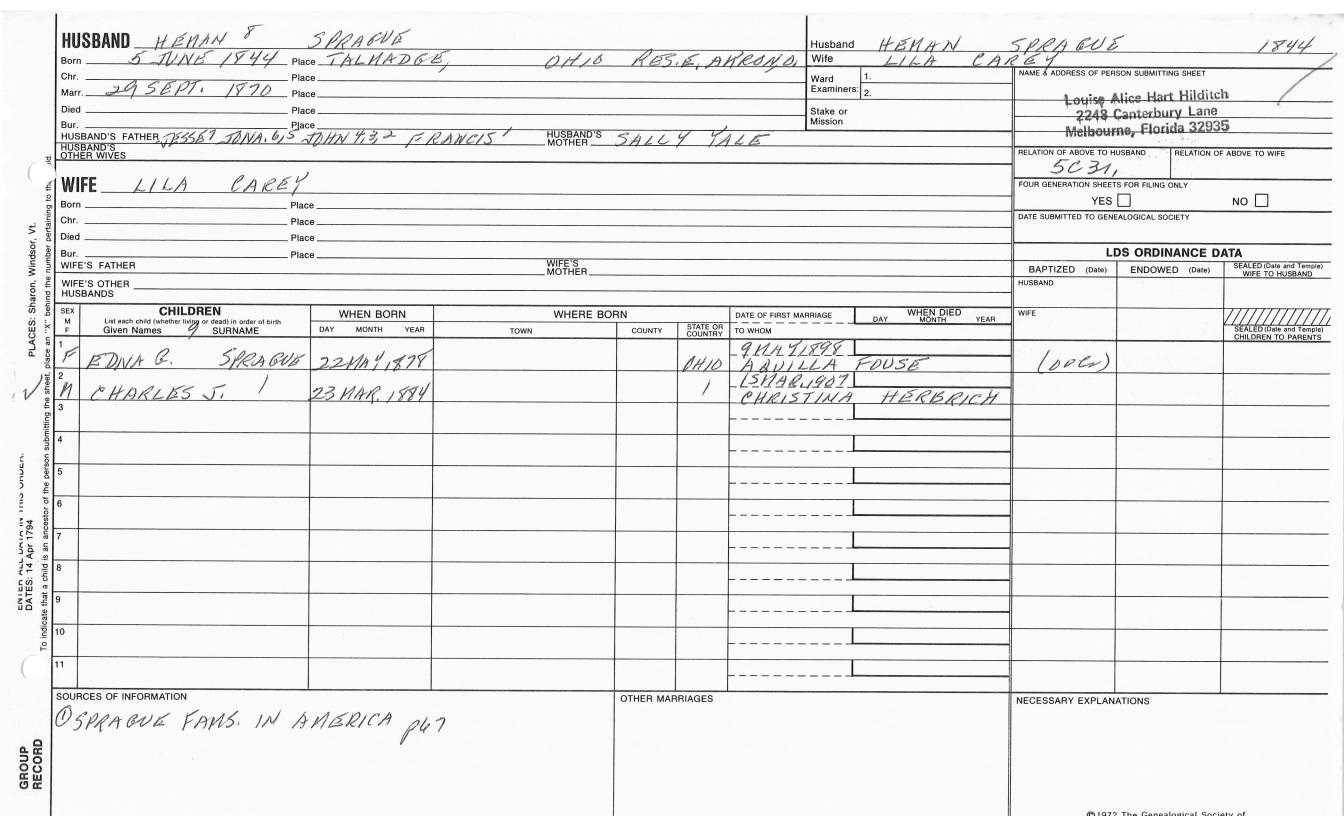 HUSBAND HEMAN 8 SPRAGUE
Born 5 JUNE 1844 Place TALMADGE, OHIO RES. E. AKRON, O.
Chr. Place
Marr. 29 SEPT. 1870 Place
Died Place
Bur. Place
HUSBAND'S FATHER JESSE7 JONA.6,5 JOHN 4,3,2 FRANCIS1 HUSBAND'S MOTHER SALLY YALE
HUSBAND'S OTHER WIVES
Husband HEMAN SPRAGUE 1844
Wife LILA CAREY
Ward Examiners: 1.
2.
Stake or Mission
NAME & ADDRESS OF PERSON SUBMITTING SHEET
Louise Alice Hart Hilditch
2248 Canterbury Lane
Melbourne, Florida 32935
RELATION OF ABOVE TO HUSBAND RELATION OF ABOVE TO WIFE
FOUR GENERATION SHEETS FOR FILING ONLY
YES NO
DATE SUBMITTED TO GENEALOGICAL SOCIETY
WIFE LILA CAREY
Born Place
Chr. Place
Died Place
Bur. Place
WIFE'S FATHER WIFE'S MOTHER
WIFE'S OTHER HUSBANDS
LDS ORDINANCE DATA
BAPTIZED (Date) ENDOWED (Date) SEALED (Date and Temple) WIFE TO HUSBAND
HUSBAND
WIFE
SEALED (Date and Temple) CHILDREN TO PARENTS
SEX M F
CHILDREN
List each child (whether living or dead) in order of birth
Given Names 9 SURNAME
WHEN BORN
DAY MONTH YEAR
WHERE BORN
TOWN COUNTY STATE OR COUNTRY
DATE OF FIRST MARRIAGE
TO WHOM
WHEN DIED
DAY MONTH YEAR
1 F EDNA G. SPRAGUE 22 MAY, 1878 OHIO 9 MAY, 1898
AQUILLA FOUSE
2 M CHARLES J. 23 MAR. 1884 15 MAR. 1907
CHRISTINA HERBRICH
3
4
5
6
7
8
9
10
11
SOURCES OF INFORMATION
① SPRAGUE FAMS. IN AMERICA p67
OTHER MARRIAGES
NECESSARY EXPLANATIONS
©1972 The Genealogical Society of
PLACES: Sharon, Windsor, Vt.
ENTER ALL DATA IN THIS ORDER.
DATES: 14 Apr 1794
To indicate that a child is an ancestor of the person submitting the sheet, place an "X" behind the number pertaining to
GROUP
RECORD